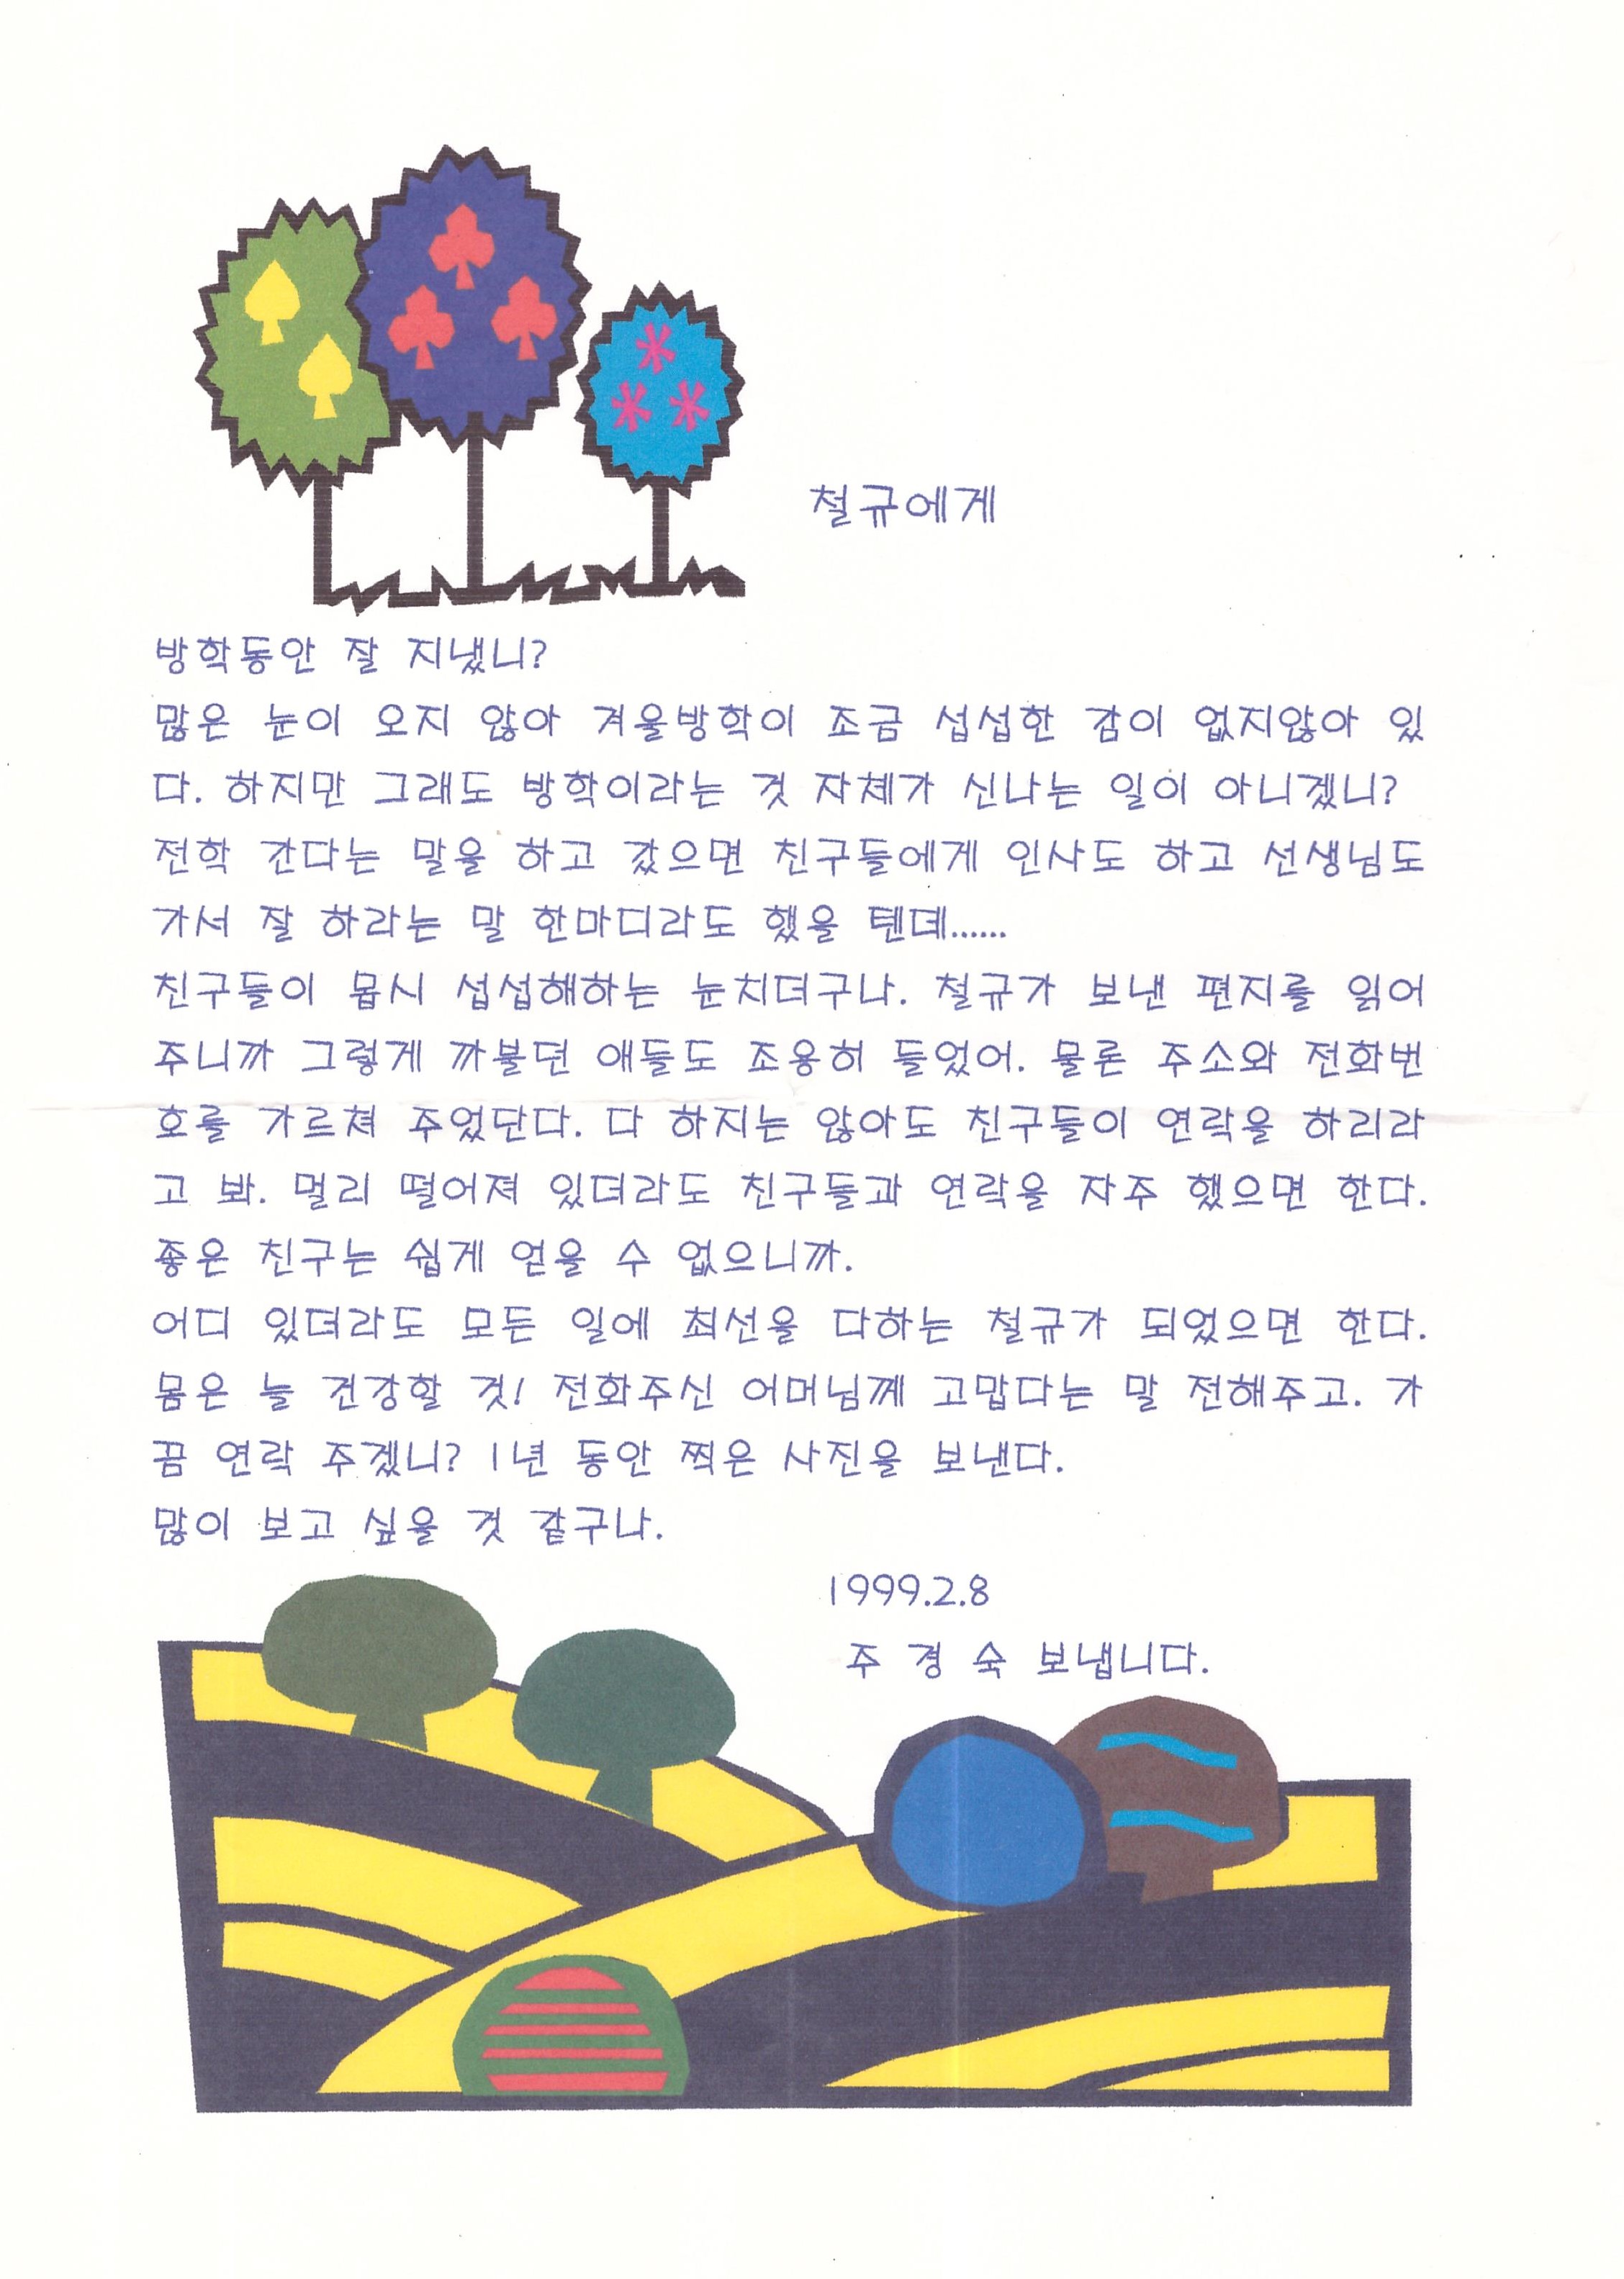 철규에게
방학동안 잘 지냈니?
많은 눈이 오지 않아 겨울방학이 조금 섭섭한 감이 없지않아 있
다. 하지만 그래도 방학이라는 것 자체가 신나는 일이 아니겠니?
전학 간다는 말을 하고 갔으면 친구들에게 인사도 하고 선생님도
가서 잘 하라는 말 한마디라도 했을 텐데......
친구들이 몹시 섭섭해하는 눈치더구나. 철규가 보낸 편지를 읽어
주니까 그렇게 까불던 애들도 조용히 들었어. 물론 주소와 전화번
호를 가르쳐 주었단다. 다 하지는 않아도 친구들이 연락을 하리라
고 봐. 멀리 떨어져 있더라도 친구들과 연락을 자주 했으면 한다.
좋은 친구는 쉽게 얻을 수 없으니까.
어디 있더라도 모든 일에 최선을 다하는 철규가 되었으면 한다.
몸은 늘 건강할 것! 전화주신 어머님께 고맙다는 말 전해주고. 가
끔 연락 주겠니? 1년 동안 찍은 사진을 보낸다.
많이 보고 싶을 것 같구나.
1999.2.8
주 경 숙 보냅니다.